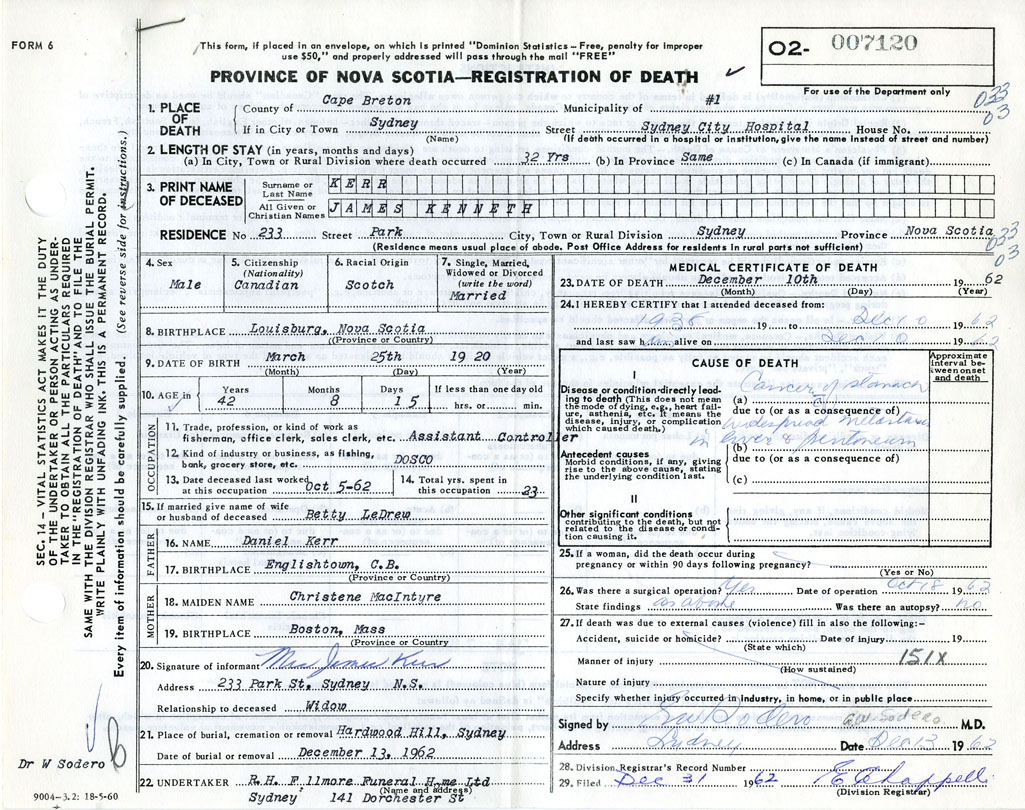 FORM 6
This form, if placed in an envelope, on which is printed "Dominion Statistics – Free, penalty for improper
use $50," and properly addressed will pass through the mail "FREE"
O2- 007120
For use of the Department only
PROVINCE OF NOVA SCOTIA—REGISTRATION OF DEATH
023
03
1. PLACE OF DEATH
County of Cape Breton Municipality of #1
If in City or Town Sydney Street Sydney City Hospital House No.
(Name) (If death occurred in a hospital or institution, give the name instead of street and number)
2. LENGTH OF STAY (in years, months and days)
(a) In City, Town or Rural Division where death occurred 32 Yrs (b) In Province Same (c) In Canada (if immigrant)
3. PRINT NAME OF DECEASED
Surname or Last Name KERR
All Given or Christian Names JAMES KENNETH
RESIDENCE No 233 Street Park City, Town or Rural Division Sydney Province Nova Scotia
(Residence means usual place of abode. Post Office Address for residents in rural parts not sufficient)
023
03
4. Sex Male
5. Citizenship (Nationality) Canadian
6. Racial Origin Scotch
7. Single, Married, Widowed or Divorced (write the word) Married
8. BIRTHPLACE Louisburg, Nova Scotia
((Province or Country)
9. DATE OF BIRTH March 25th 19 20
(Month) (Day) (Year)
10. AGE in Years 42 Months 8 Days 15 If less than one day old
hrs. or min.
OCCUPATION
11. Trade, profession, or kind of work as
fisherman, office clerk, sales clerk, etc. Assistant Controller
12. Kind of industry or business, as fishing,
bank, grocery store, etc. DOSCO
13. Date deceased last worked at this occupation Oct 5-62
14. Total yrs. spent in this occupation 23
15. If married give name of wife
or husband of deceased Betty LeDrew
FATHER
16. NAME Daniel Kerr
17. BIRTHPLACE Englishtown, C.B.
(Province or Country)
MOTHER
18. MAIDEN NAME Christene MacIntyre
19. BIRTHPLACE Boston, Mass
(Province or Country)
20. Signature of informant Mrs James Kerr
Address 233 Park St, Sydney N.S.
Relationship to deceased Widow
21. Place of burial, cremation or removal Hardwood Hill, Sydney
Date of burial or removal December 13, 1962
22. UNDERTAKER R.H. Fillmore Funeral Home Ltd
(Name and address)
Sydney 141 Dorchester St
MEDICAL CERTIFICATE OF DEATH
23. DATE OF DEATH December 10th 19 62
(Month) (Day) (Year)
24. I HEREBY CERTIFY that I attended deceased from:
1938 19 to Dec 10 19 62
and last saw him alive on Dec 10 19 62
CAUSE OF DEATH
Approximate interval between onset and death
I
Disease or condition directly leading to death (This does not mean
the mode of dying, e.g., heart failure, asthenia, etc. It means the
disease, injury, or complication which caused death.)
(a) Cancer of stomach
due to (or as a consequence of)
widespread metastases
in liver & peritoneum
(b)
due to (or as a consequence of)
(c)
Antecedent causes
Morbid conditions, if any, giving
rise to the above cause, stating
the underlying condition last.
II
Other significant conditions
contributing to the death, but not
related to the disease or condition causing it.
25. If a woman, did the death occur during
pregnancy or within 90 days following pregnancy?
(Yes or No)
26. Was there a surgical operation? Yes Date of operation Oct 18 19 62
State findings as above Was there an autopsy? no
27. If death was due to external causes (violence) fill in also the following:–
Accident, suicide or homicide? Date of injury 19
(State which)
151X
Manner of injury
(How sustained)
Nature of injury
Specify whether injury occurred in industry, in home, or in public place
Signed by GW Sodero G.W. Sodero M.D.
Address Sydney Date Dec 13 19 62
28. Division Registrar's Record Number
29. Filed Dec 31 19 62 E Chappell
(Division Registrar)
SEC. 14 – VITAL STATISTICS ACT MAKES IT THE DUTY
OF THE UNDERTAKER OR PERSON ACTING AS UNDER-
TAKER TO OBTAIN ALL THE PARTICULARS REQUIRED
IN THE "REGISTRATION OF DEATH" AND TO FILE THE
SAME WITH THE DIVISION REGISTRAR WHO SHALL ISSUE THE BURIAL PERMIT.
WRITE PLAINLY WITH UNFADING INK. THIS IS A PERMANENT RECORD.
Every item of information should be carefully supplied. (See reverse side for instructions.)
Dr W Sodero
9004-3.2: 18-5-60